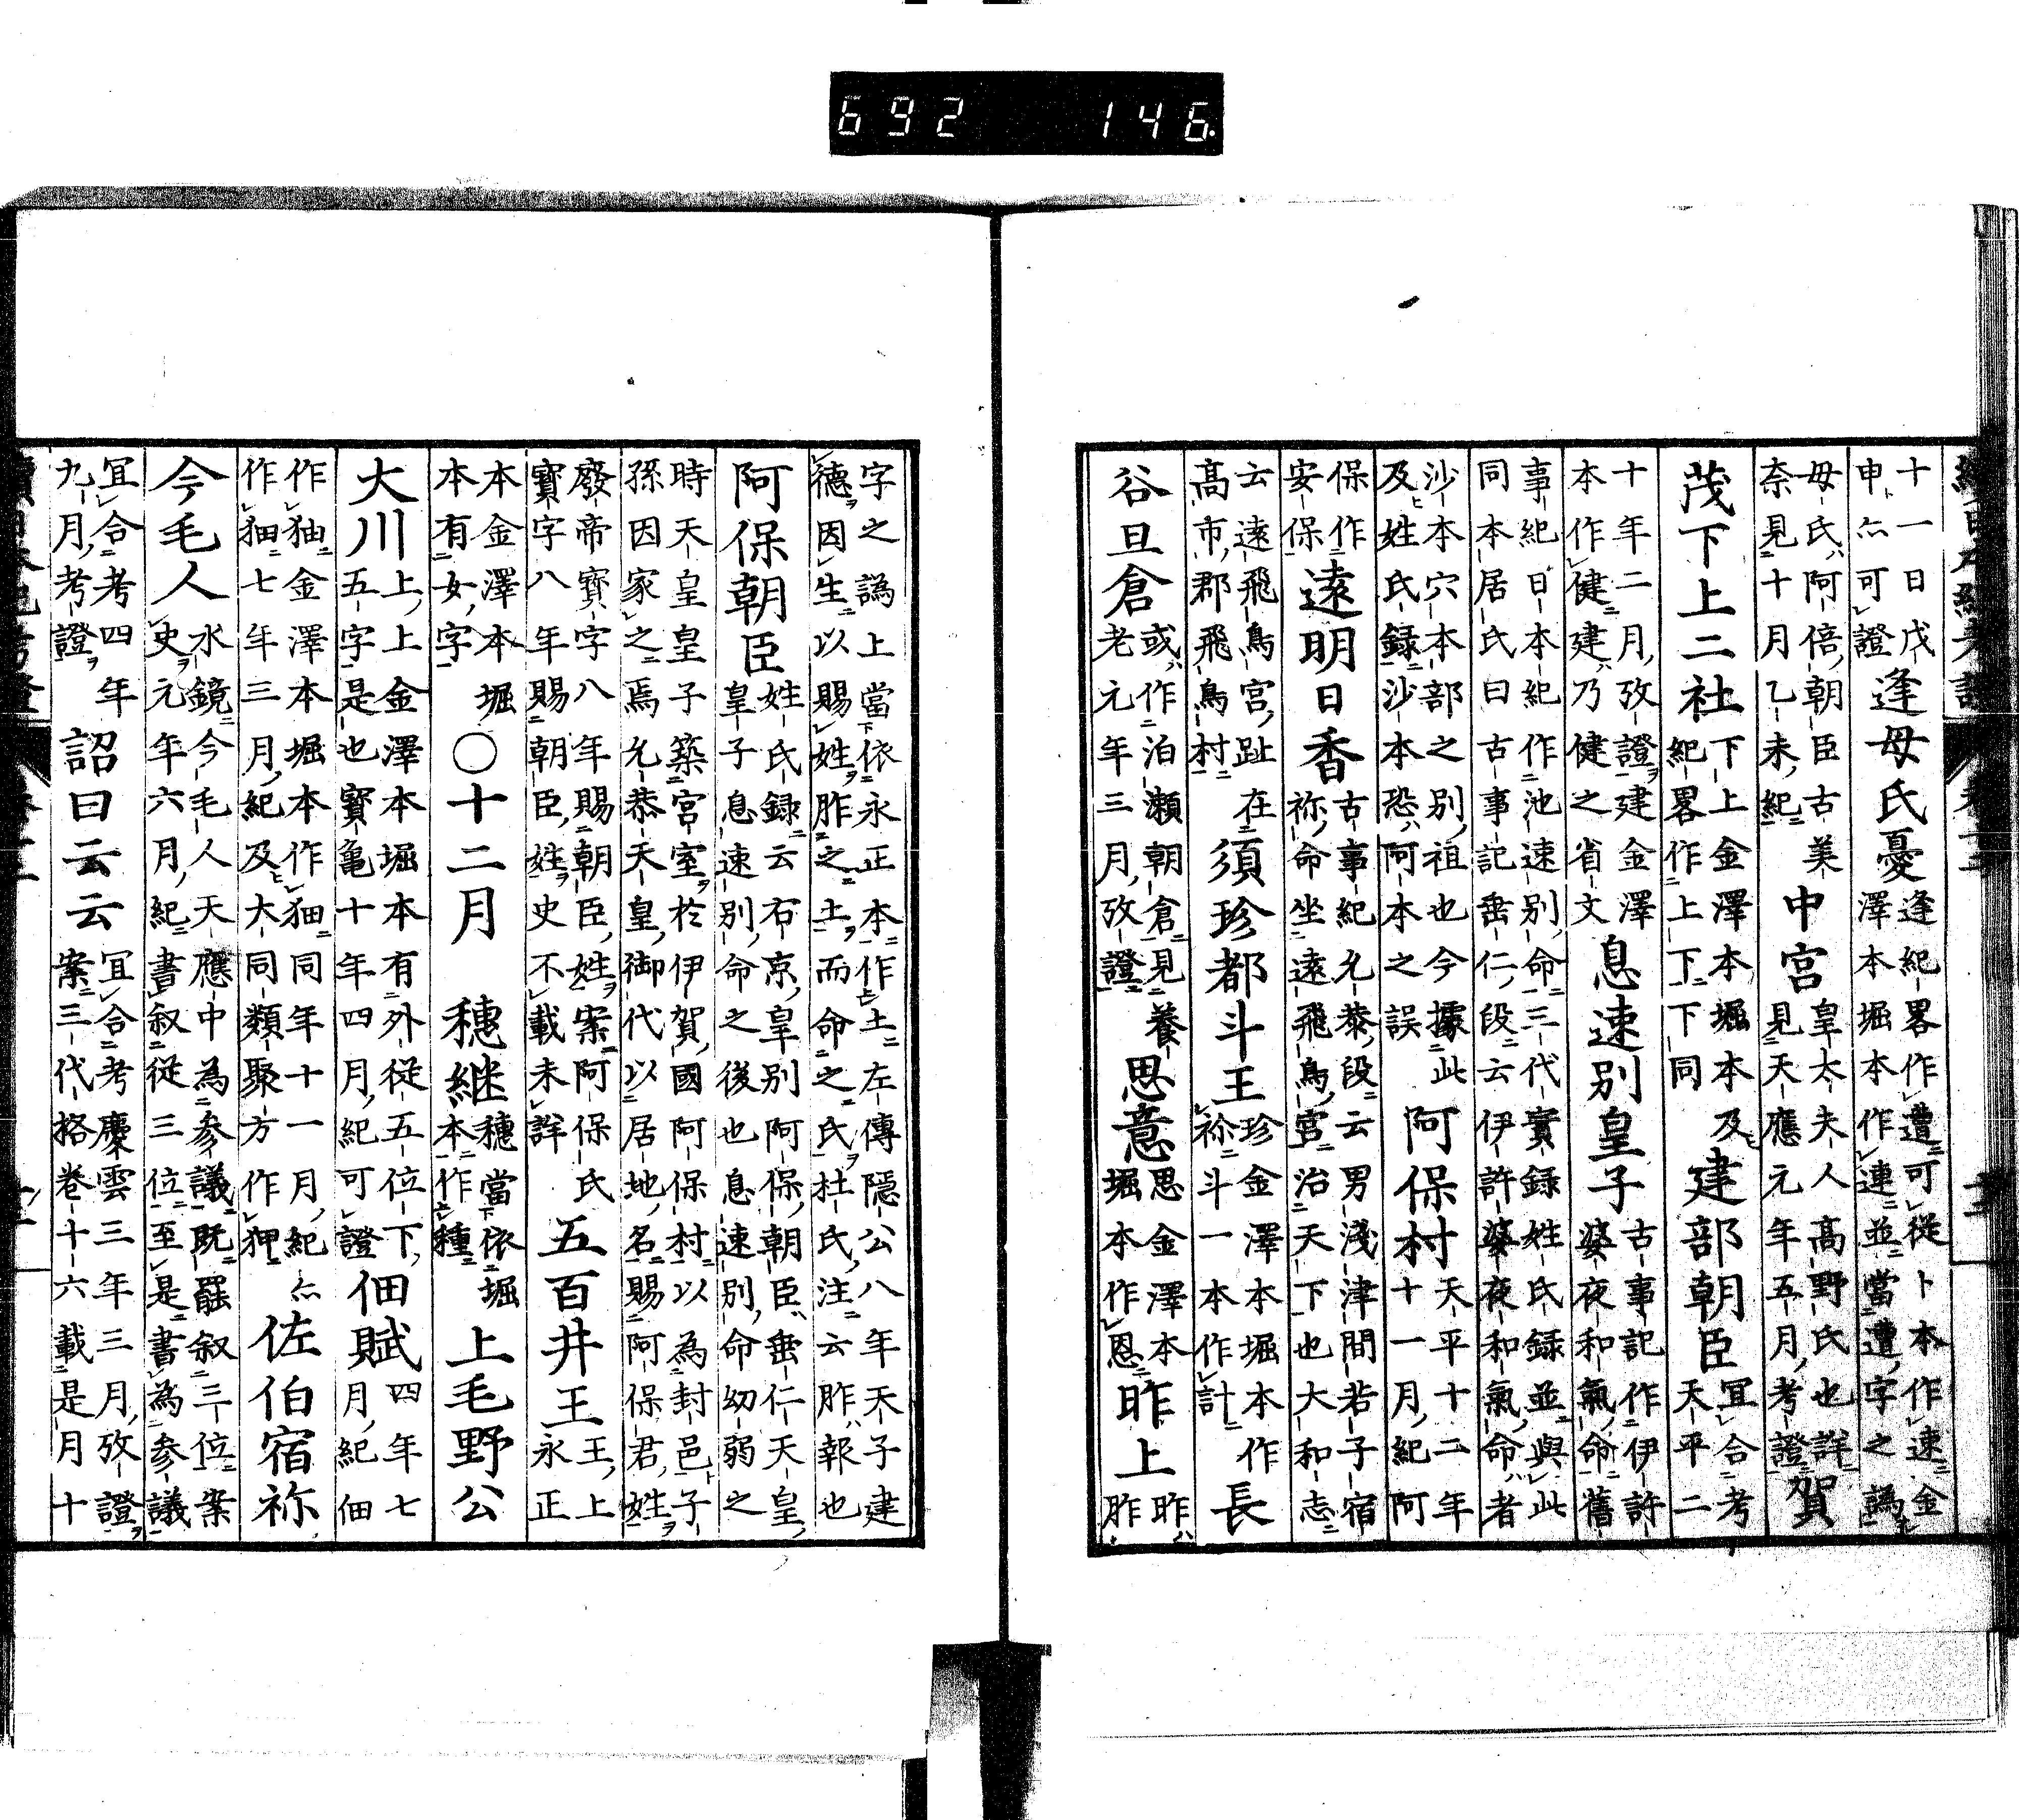 692 146.
十一日戊申亽可證逢母氏憂逢紀畧作遭可從卜本作速金澤本堀本作連並當遭字之譌
母氏阿倍朝臣古美奈見十月乙未紀中宮皇太夫人高野氏也詳見天應元年五月考證賀
茂下上二社下上金澤本堀本紀畧作上下下同及建部朝臣冝合考天平二
十年二月攷證建金澤本作健建乃健之省文息速別皇子古事記作伊許婆夜和氣命舊
事紀日本紀作池速別命三代實録姓氏録並與此同本居氏曰古事記垂仁段云伊許婆夜和氣命者
沙本穴本部之別祖也今據此及姓氏録沙本恐阿本之誤阿保村天平十二年十一月紀阿
保作安保遠明日香古事紀允恭段云男淺津間若子宿祢命坐遠飛鳥宮治天下也大和志
云遠飛鳥宮趾在髙市郡飛鳥村須珍都斗王珍金澤本堀本作袮斗一本作計長
谷旦倉或作泊瀬朝倉見養老元年三月攷證思意思金澤本堀本作恩昨上昨昨
字之譌上當依永正本作土左傳隱公八年天子建德因生以賜姓胙之土而命之氏杜氏注云胙報也
阿保朝臣姓氏録云右京皇別阿保朝臣垂仁天皇皇子息速別命之後也息速別命幼弱之
時天皇皇子築宮室於伊賀國阿保村以為封邑子孫因家之焉允恭天皇御代以居地名賜阿保君姓
廢帝寶字八年賜朝臣姓案阿保氏寶字八年賜朝臣姓史不載未詳五百井王王上永正
本金澤本堀本有女字○十二月穗継穗當依堀本作種上毛野公
大川上上金澤本堀本有外從五位下五字是也寶亀十年四月紀可證佃賦四年七月紀佃
作㹨金澤本堀本作㹨同年十一月紀亽作㹨七年三月紀及大同類聚方作狎佐伯宿祢
今毛人水鏡今毛人天應中為參議既罷叙三位案史元年六月紀書叙從三位至是書為參議
冝合考四年九月考證詔曰云云冝合考慶雲三年三月攷證案三代格卷十六載是月十